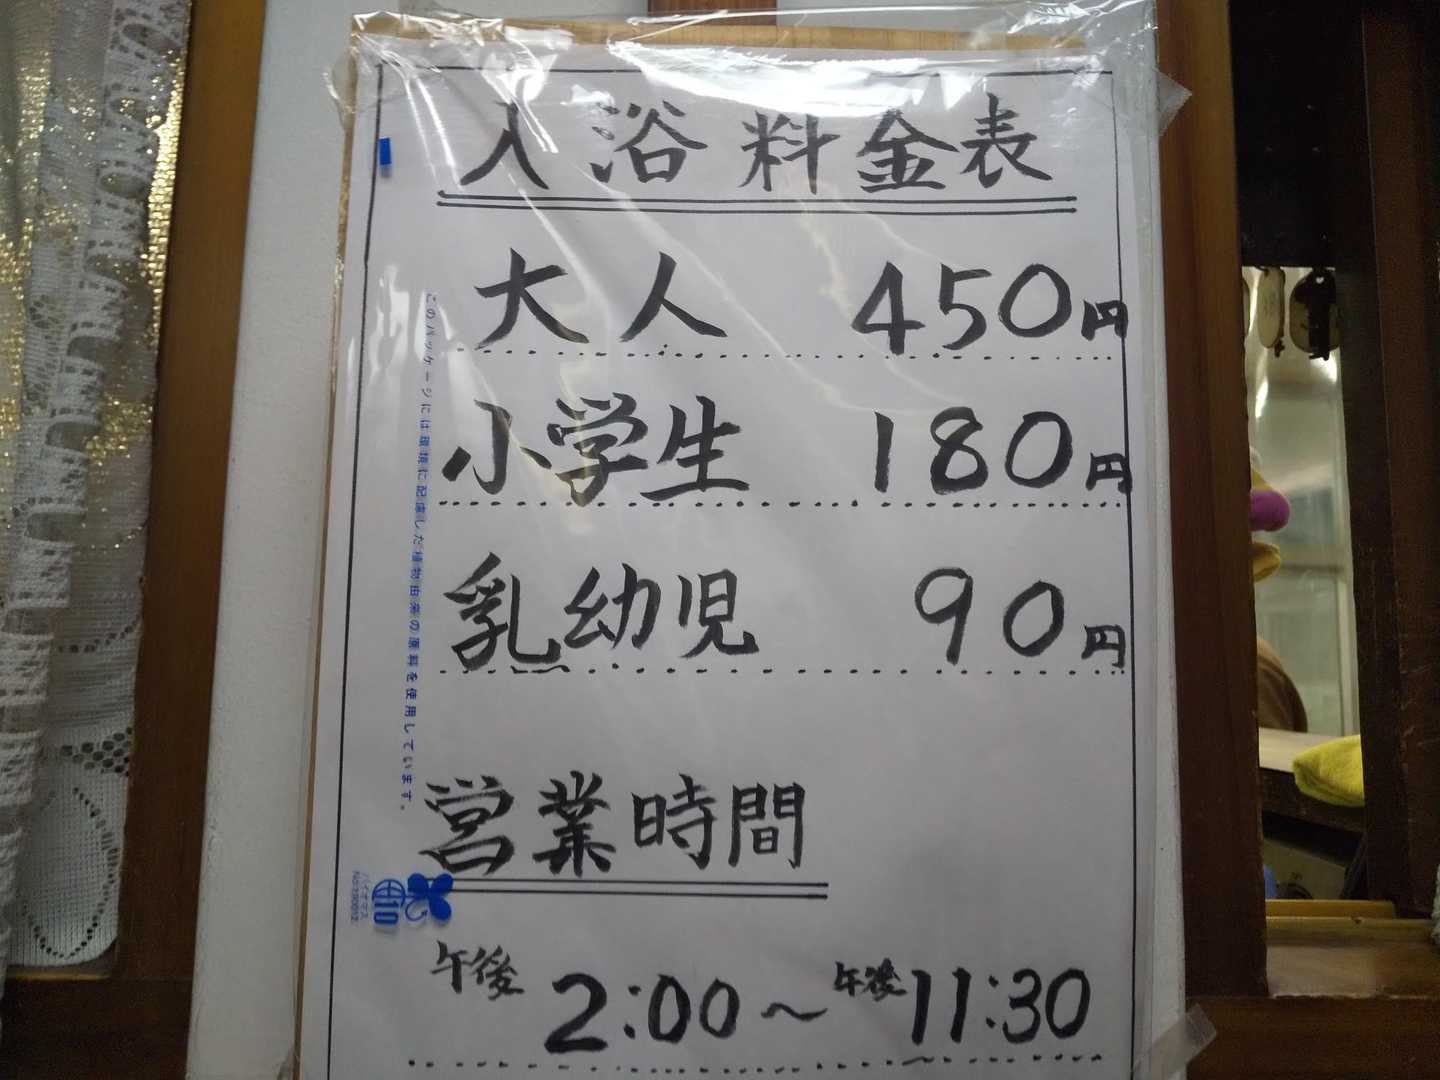 入浴料金表
大人 450円
小学生 180円
乳幼児 90円
営業時間
午後 2:00～午後11:30
このパッケージには環境に配慮した植物由来の原料を使用しています。
バイオマス
10